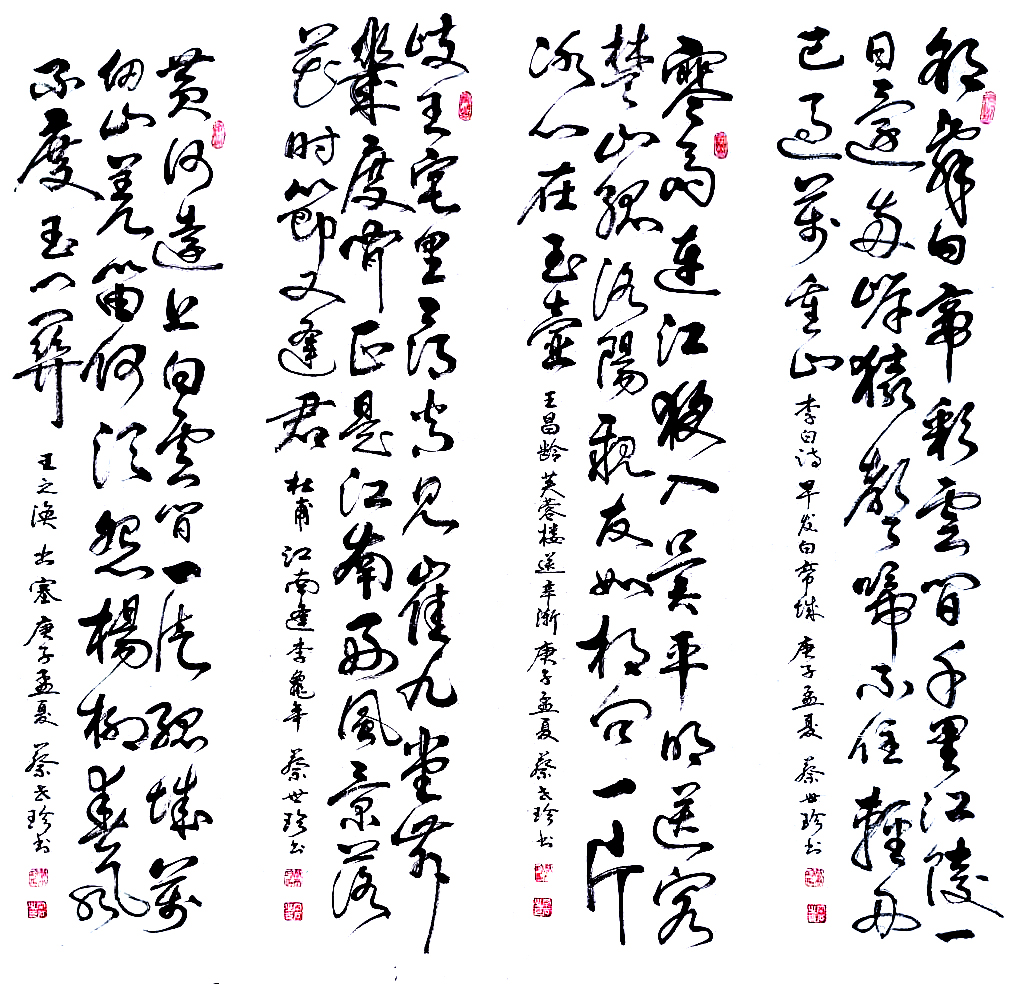 朝辞白帝彩雲间千里江陵一
日還两岸猿聲啼不住輕舟
已過萬重山 李白诗 早发白帝城 庚子孟夏 蔡世珍书
寒雨連江夜入吴平明送客
楚山孤洛陽親友如相问一片
冰心在玉壶 王昌龄 芙蓉楼送辛渐 庚子孟夏 蔡世珍书
岐王宅里尋常見崔九堂前
幾度闻正是江南好風景落
花时節又逢君 杜甫 江南逢李龜年 蔡世珍书
黄河遠上白雲间一片孤城萬
仞山羌笛何须怨楊柳春風
不度玉门關 王之涣 出塞 庚子孟夏 蔡世珍书